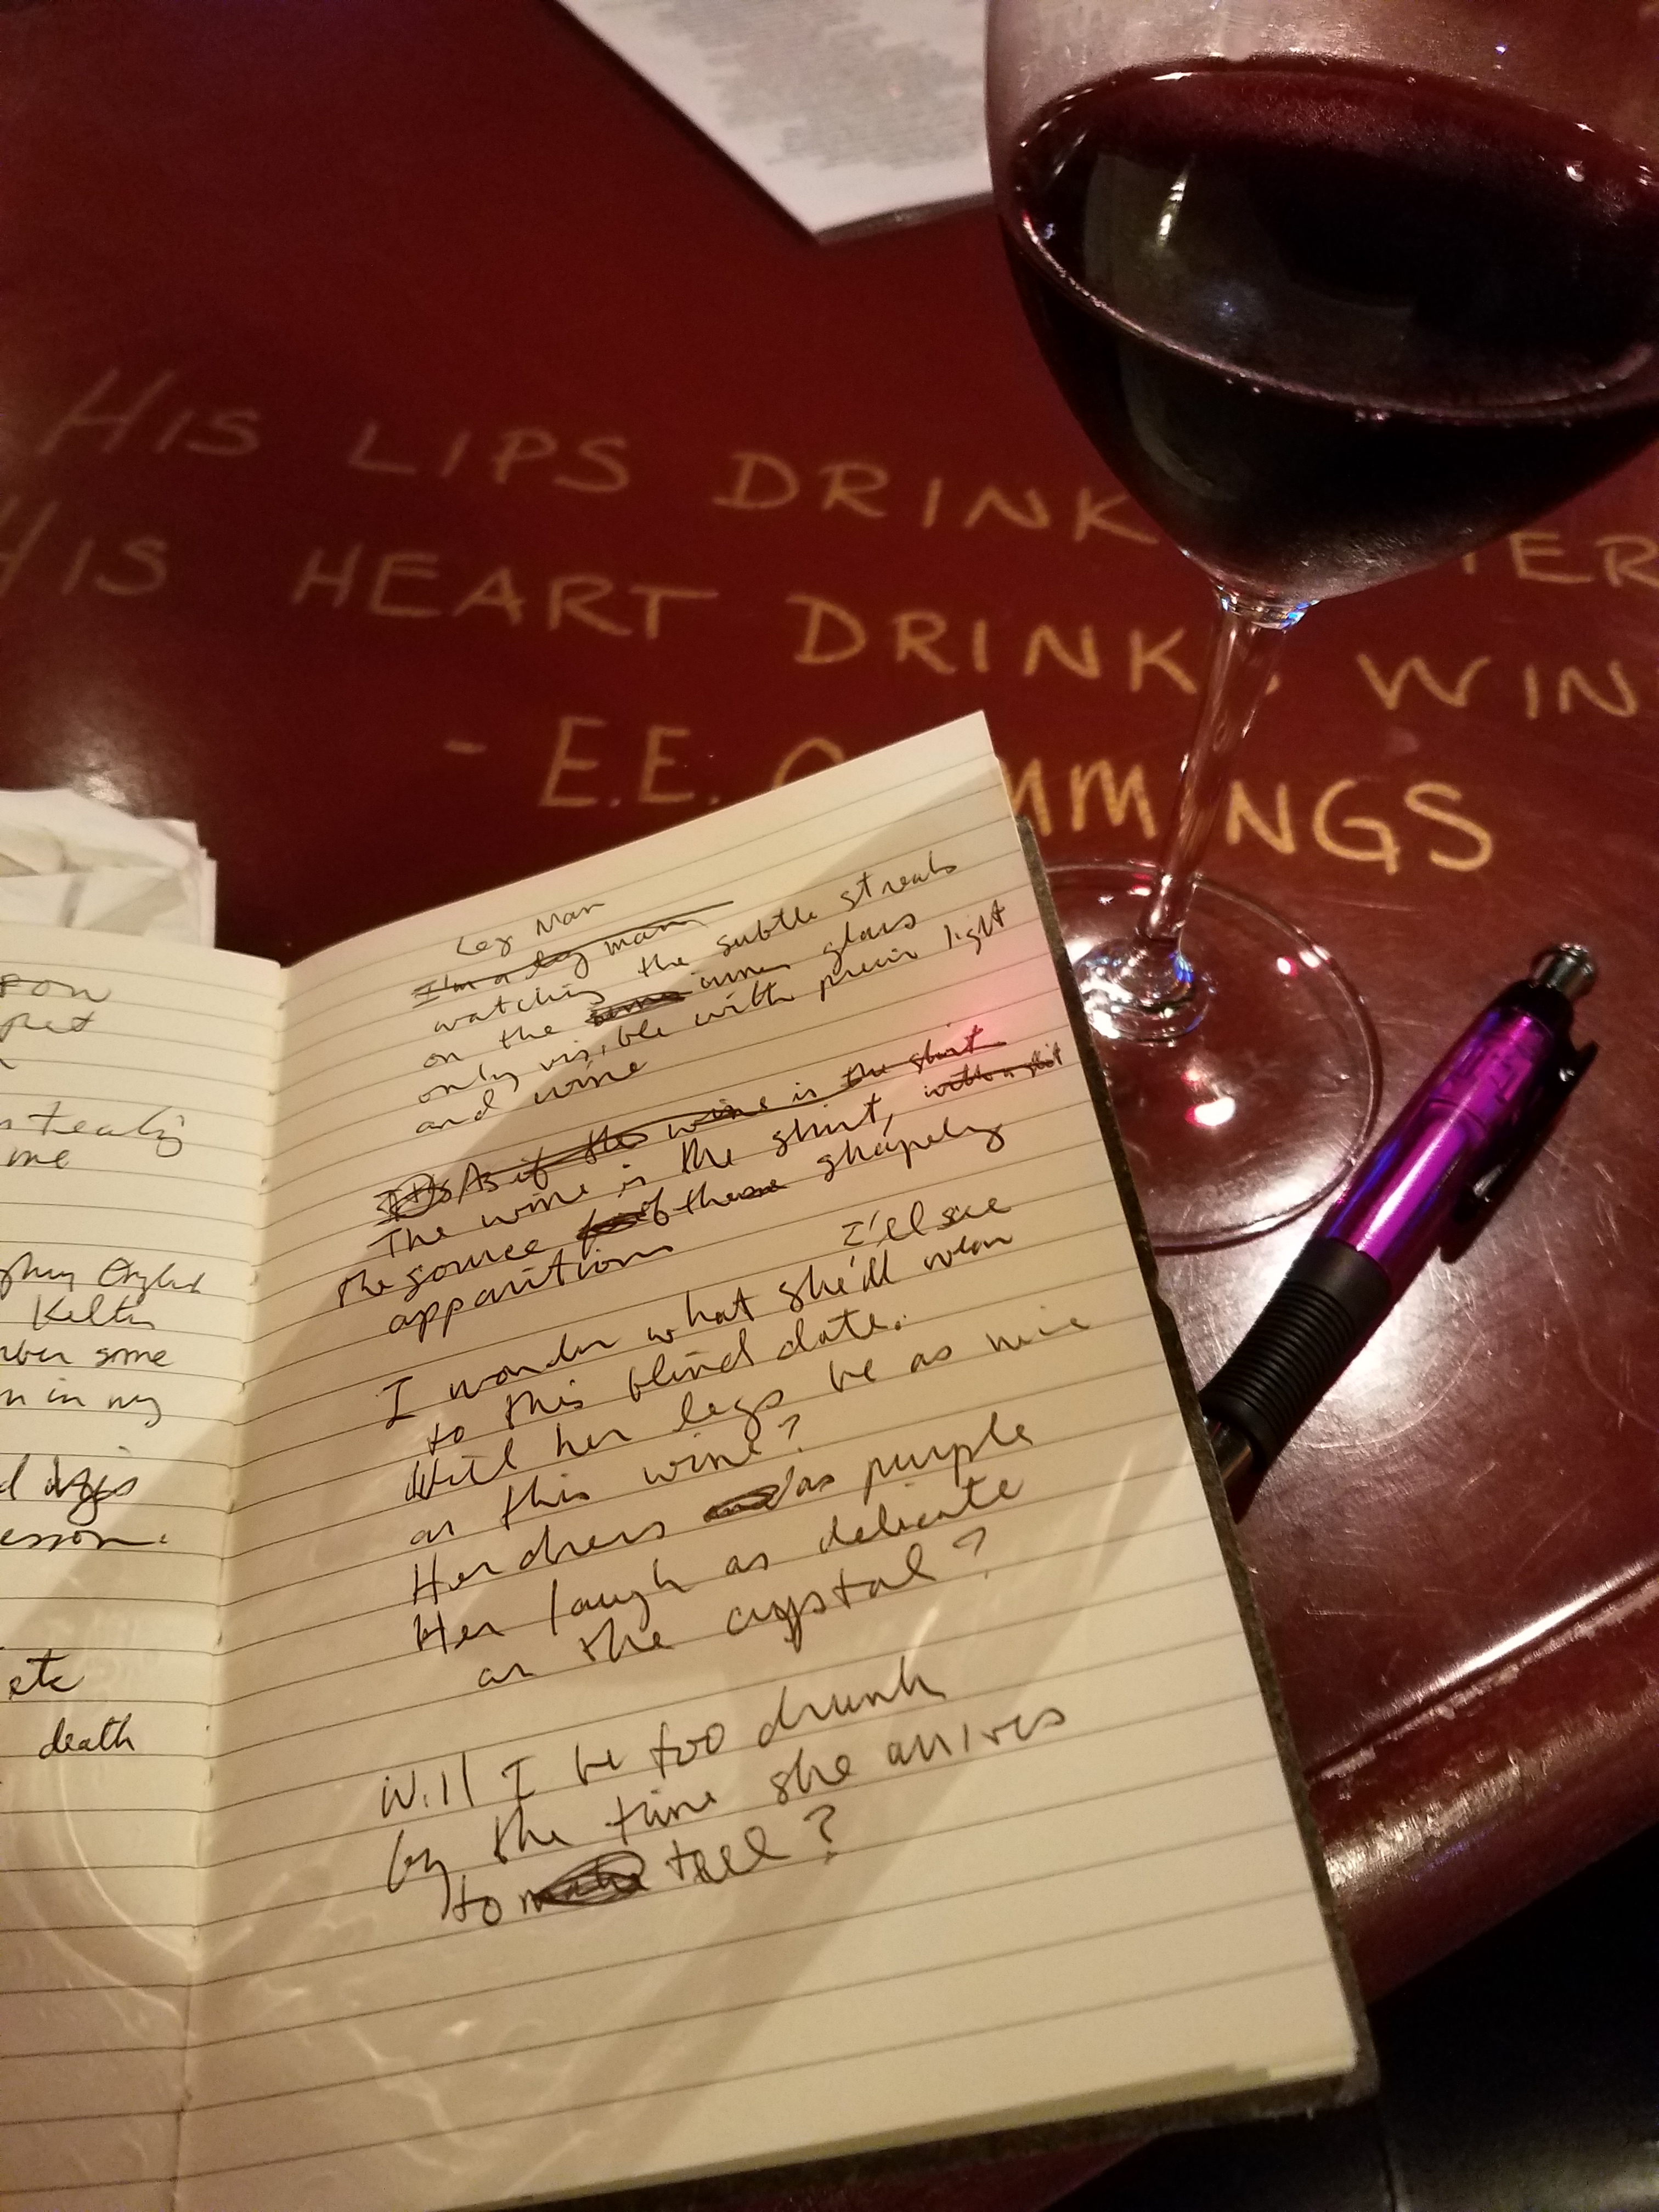 HIS LIPS DRINK TER
HIS HEART DRINKS WIN
- E.E. C MMINGS
Leg Man
I'm a leg man
watching the subtle streaks
on the inner glass
only visible with light
and wine
As if the wine is the skirt
The wine is the skirt,
the source of these shapely
apparitions
I'll see
I wonder what she'll wear
to this blind date.
Will her legs be as nice
as this wine?
Her dress as purple
Her laugh as delicate
as the crystal?
Will I be too drunk
by the time she arrives
to tell?
pon
me
Kelts
some
in my
etc
death